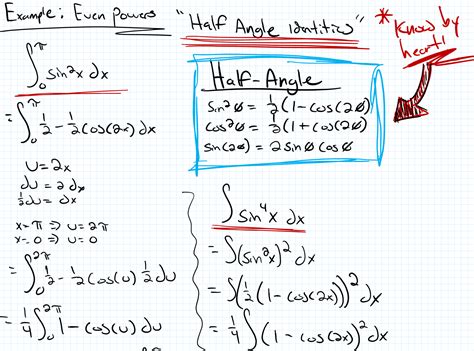 Example: Even Powers
"Half Angle Identities"
* Know by heart!
∫₀^π sin²x dx
= ∫₀^π 1/2 - 1/2 cos(2x) dx
u = 2x
du = 2 dx
1/2 du = dx
x = π ⇒ u = 2π
x = 0 ⇒ u = 0
= ∫₀^2π 1/2 - 1/2 cos(u) 1/2 du
= 1/4 ∫₀^2π 1 - cos(u) du
Half-Angle
sin²θ = 1/2 (1 - cos(2θ)
cos²θ = 1/2 (1 + cos(2θ)
sin(2θ) = 2 sinθ cosθ
∫ sin⁴x dx
= ∫(sin²x)² dx
= ∫(1/2 (1 - cos(2x)))² dx
= 1/4 ∫ (1 - cos(2x))² dx